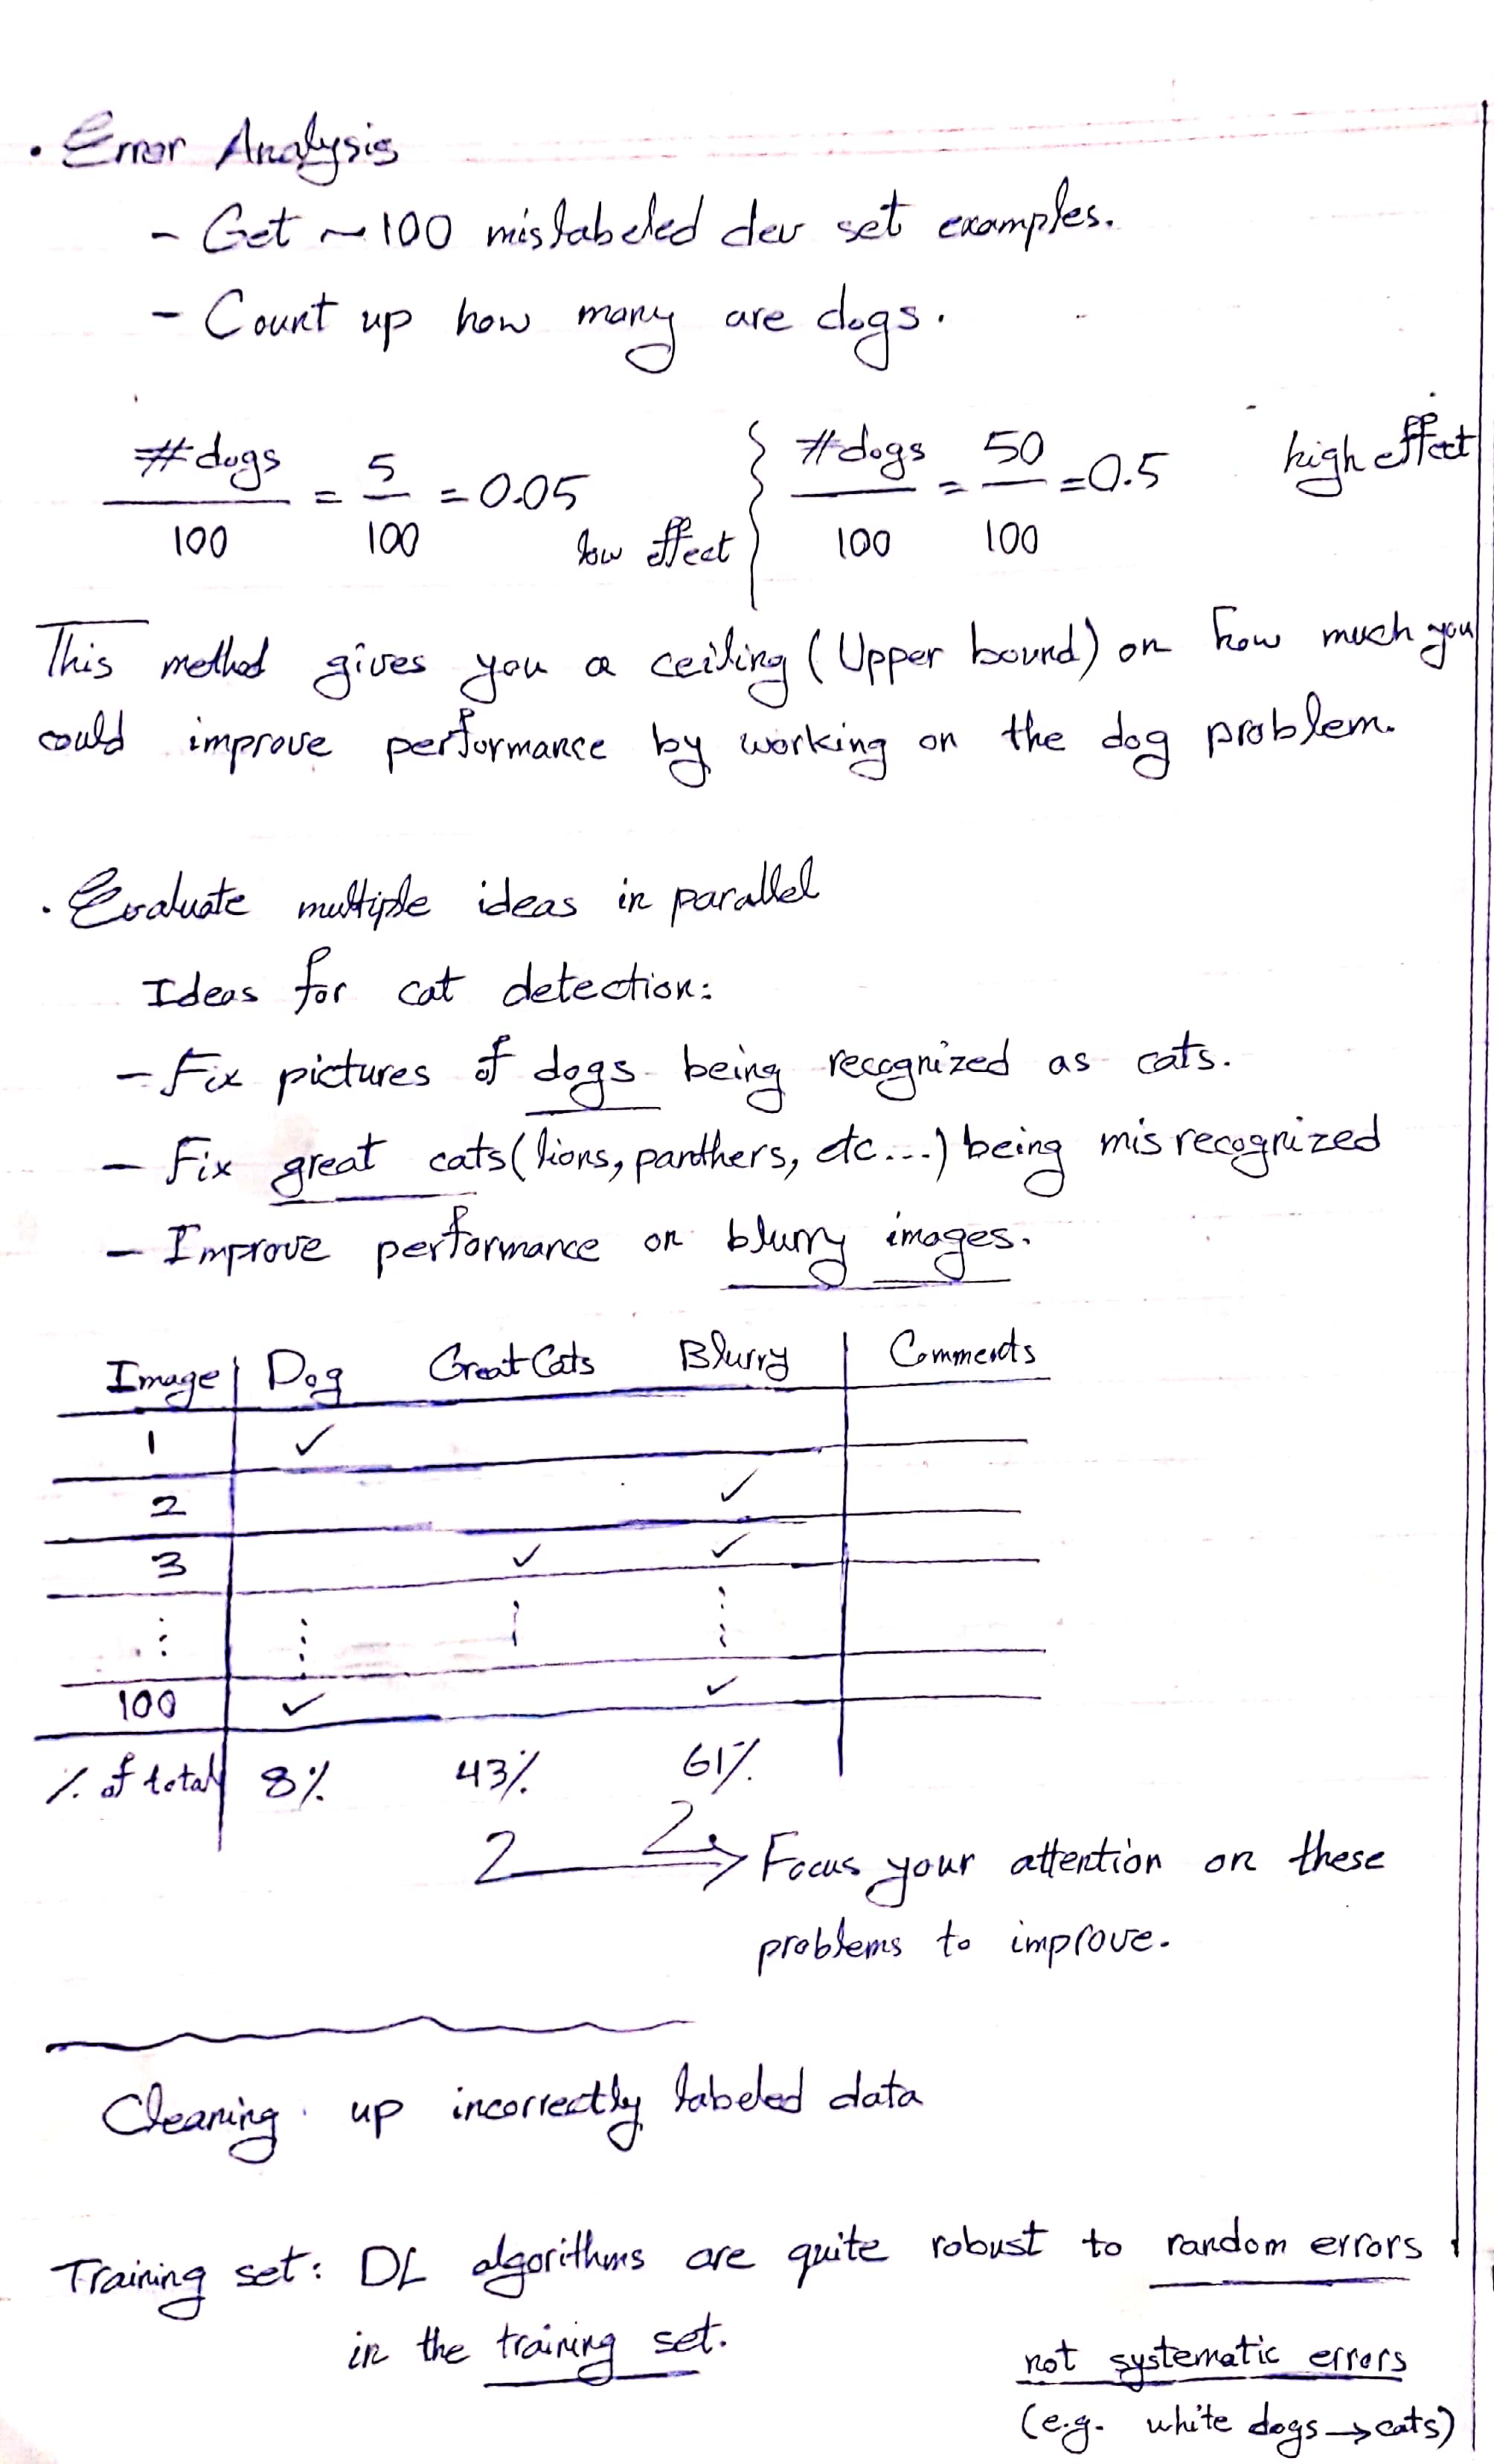 • Error Analysis
- Get ~100 mislabeled dev set examples.
- Count up how many are dogs.
#dogs/100 = 5/100 = 0.05 low effect } #dogs/100 = 50/100 = 0.5 high effect
This method gives you a ceiling (Upper bound) on how much you
could improve performance by working on the dog problem.
• Evaluate multiple ideas in parallel
Ideas for cat detection:
- Fix pictures of dogs being recognized as cats.
- Fix great cats (lions, panthers, etc...) being misrecognized
- Improve performance on blurry images.
Image Dog Great Cats Blurry Comments
1 ✓
2 ✓
3 ✓ ✓
⋮ ⋮ ⋮ ⋮
100 ✓ ✓
% of total 8% 43% 61%
Focus your attention on these
problems to improve.
Cleaning up incorrectly labeled data
Training set: DL algorithms are quite robust to random errors
in the training set.
not systematic errors
(e.g. white dogs → cats)